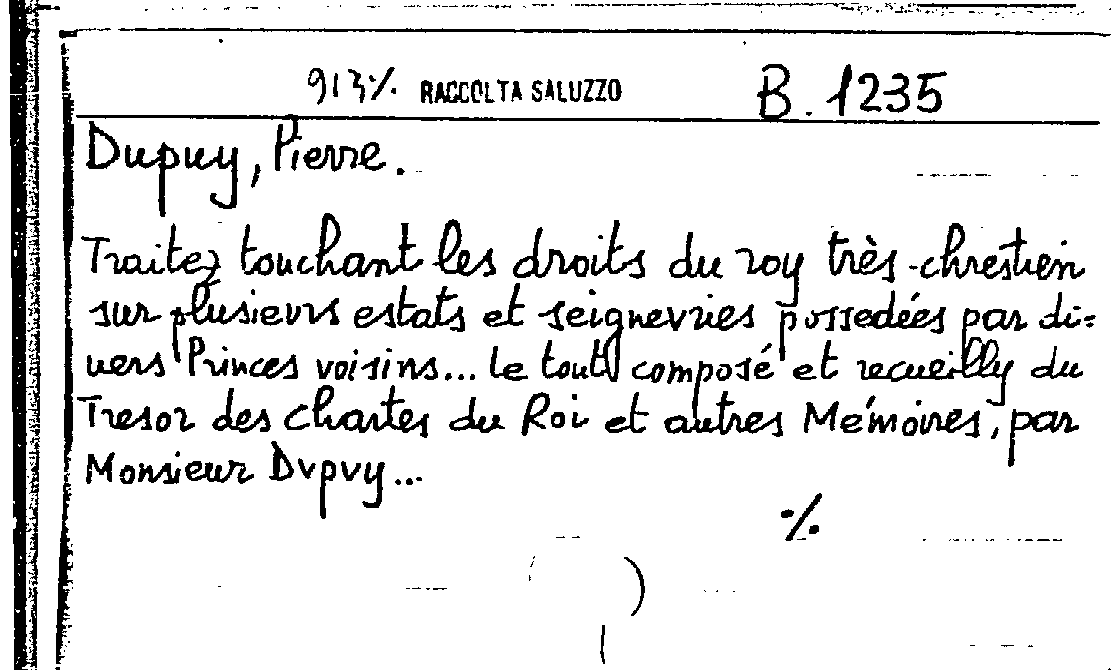 913 ·/. RACCOLTA SALUZZO B. 1235
Dupuy, Pierre.
Traitez touchant les droits du roy très-chrestien
sur plusieurs estats et seignevries possedées par di=
uers Princes voisins... le tout composé et recueilly du
Tresor des chartes du Roi et autres Mémoires, par
Monsieur Dvpvy...
·/.